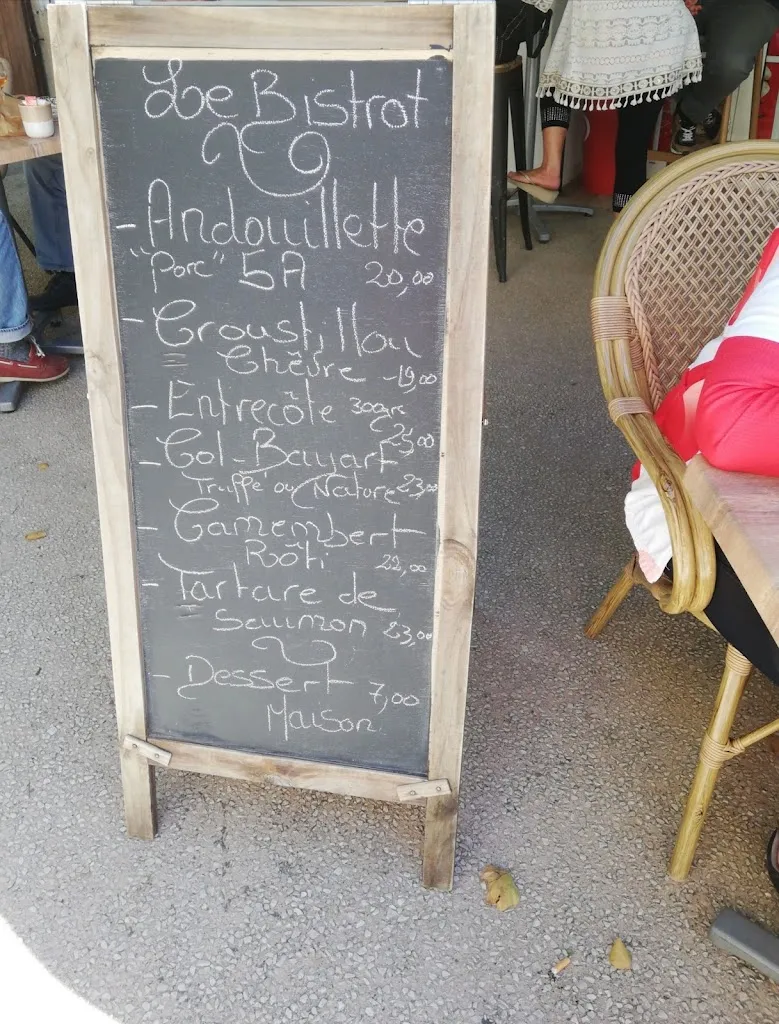 Le Bistrot
- Andouillette
"Porc" 5A 20,00
- Croustillou
Chèvre -19,00
- Entrecôte 300grs
25,00
- Col-Bayart
Truffe ou Nature 23,00
- Camembert
Rôti 22,00
- Tartare de
Saumon 23,00
- Dessert 7,00
Maison